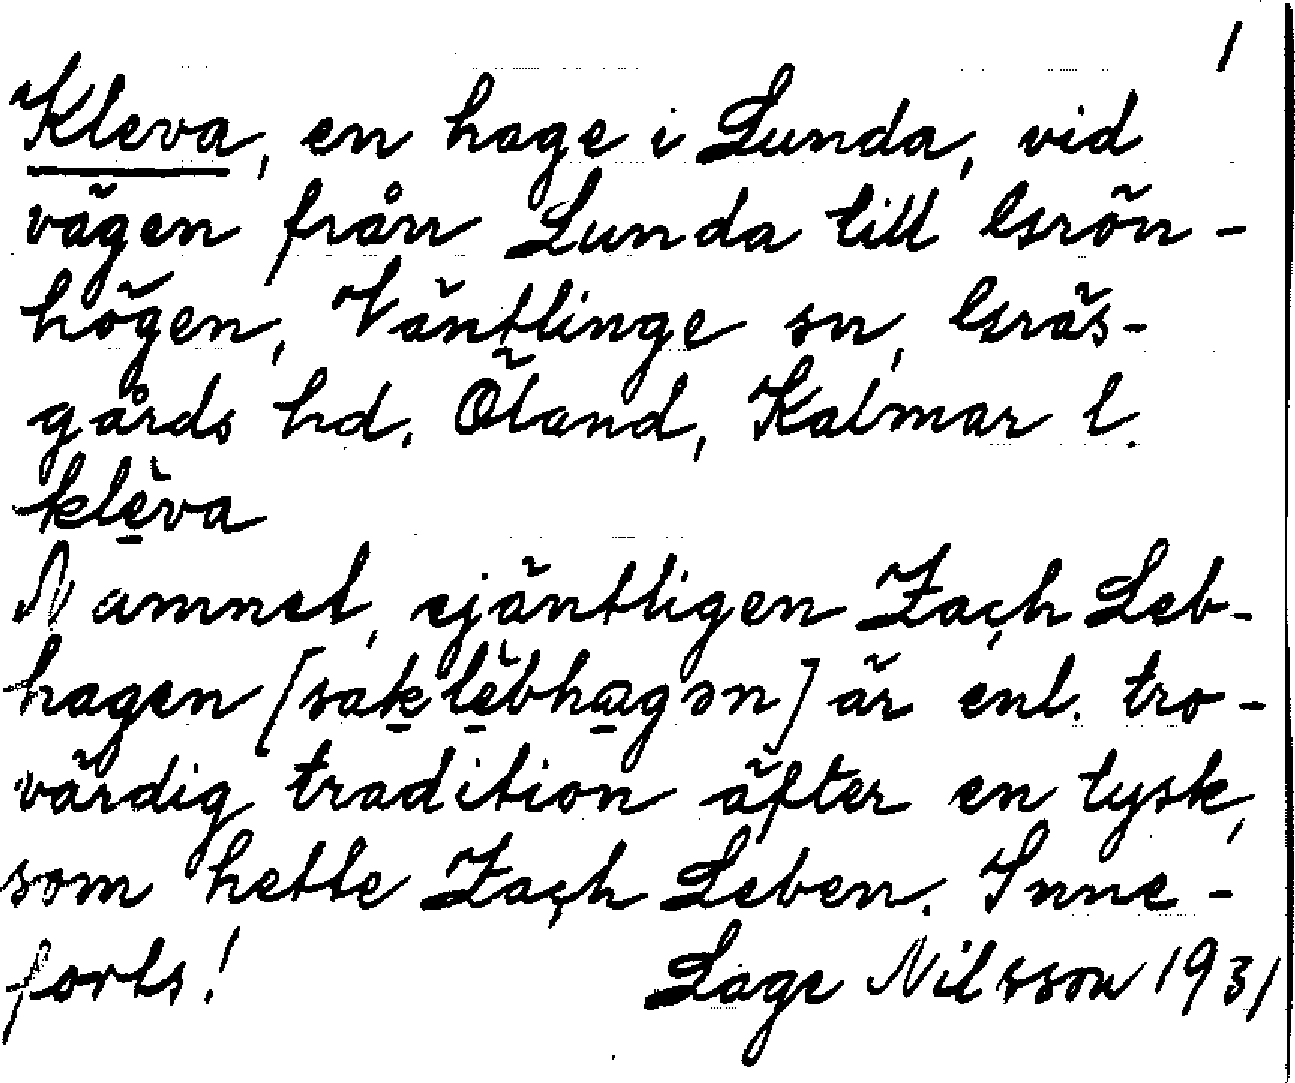 1
Kleva, en hage i Lunda, vid
vägen från Lunda till Grön-
högen, Väntlinge sn, Gräs-
gårds hd. Öland, Kalmar l.
klèva
Namnet, ejäntligen Zach Leb-
hagen [sak lèbhagən] är enl. tro-
värdig tradition äfter en tysk,
som hette Zach Leben. Inne-
forts! Lage Nilsson 1931